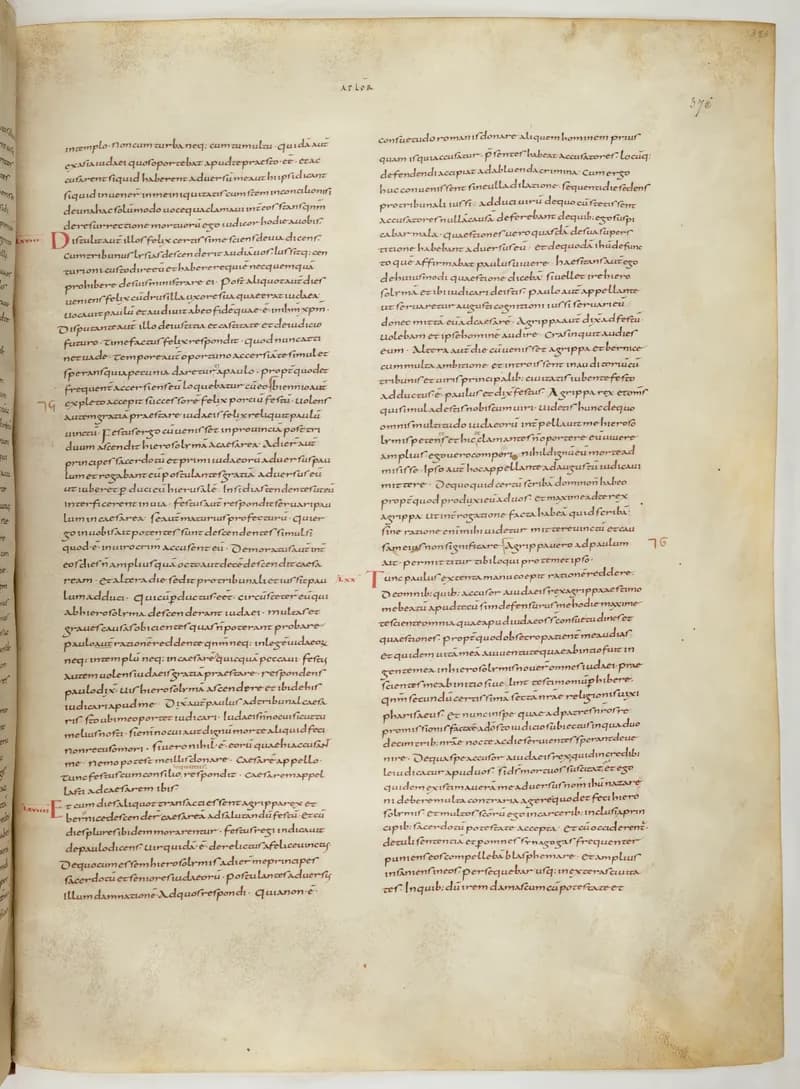 ACTꝰ APLOR
376
intemplo · Non cum turba neq; cum tumultu · quidā aut̄
ex asia iudaei quos oportebat apud te praesto ·ēē· et ac
cusare si quid haberent aduersū me aut hi ipsi dicant
si quid inuener̄ in me iniquitatis cum stem in concilio nisi
de una hac solūmodo uoce qua clamaui int̄ eos stans qm̄
de resurrectione mortuorū ego iudicor hodie a uobis·
LXVIII Distulit aut̄ illos felix certissime sciens de uia dicens·
Cum tribunus lysias descenderit audiā uos· Iussitq; cen
turioni custodire eū et habere requiē nec quemquā
prohibere de suis ministrare ei · Post aliquot aut̄ dies
ueniens felix cū drusilla uxore sua quae erat iudaea
uocauit paulū et audiuit ab eo fidē quae ē in ihm̄ xp̄m ·
Disputante aut̄ illo de iustitia et castitate et de iudicio
futuro · timefactus felix respondit · quod nunc atti
net uade · Tempore aut̄ oportuno accersiā te simul et
sperans quia pecunia daretur a paulo · propt̄ quod et
frequent̄ accersiens eū loquebatur cū eo · biennio aut̄
expleto accepit successorē felix porciū festū · Uolens
autem gratiā praestare iudaeis felix reliquit paulū
uinctū · Festus ergo cū uenisset in prouinciā post tri
duum ascendit hierosolimā a caesarea · Adier̄ aut̄
principes sacerdotū et primi iudaeorū aduersus pau
lum et rogabant eū postulantes gratiā aduersus eū
ut iuberet perduci eū hierusalē · Insidias tendentes ut eū
interficerent in uia · festus aut̄ respondit seruari pau
lum in caesarea · se aut̄ maturius profecturū · Qui er
go in uobis ait potentes sunt descendentes simul si
quod ē in uiro crimen accusent eū · Demoratus aut̄ int̄
eos dies n̄ amplius quā octo aut decē descendit caesa
ream · Et altera die sedit pro tribunali et iussit pau
lum adduci · Qui cū pductus eēt · circūsteter̄ eū qui
ab hierosolima descenderant iudaei · multas et
graues causas obicientes quas n̄ poterant probare
paulo aut̄ rationē reddente qm̄ neq; in legē iudaeoꝝ
neq; in templū neq; in caesarē quicquā peccaui · festus
autem uolens iudaeis gratiā praestare · respondens
paulo dix̄ · Uis hierosolimā ascendere et ibi de his
iudicari apud me · Dix̄ aut̄ paulus ad tribunal caesa
ris sto ubi me oportet iudicari · Iudaeis n̄ nocui sicut tu
melius nosti · Si enī nocui aut dignū morte aliquid feci
non recuso mori · si uero nihil ē eorū quae hi accusant
me · nemo potest me illis donare · Caesarē appello ·
Tunc festus cum consilio locutus respondit · Caesarem appel
lasti ad caesarem ibis
LXVIIII Et cum dies aliquot transacti essent agrippa rex et
bernice descender̄ caesareā ad salutandū festū · Et cū
dies plures ibidem morarentur · festus regi indicauit
de paulo dicens · Uir quidā ē derelictus a felice uinctus
De quo cum essem hierosolimis adier̄ me principes
sacerdotū et seniores iudaeorū · postulantes aduersus
illum damnationē · Ad quos respondi · Quia non ē
consuetudo romanis donare aliquem hominem prius
quam is qui accusatur · p̄sentes habeat accusatores · locūq;
defendendi accipiat ad abluenda crimina · Cum ergo
huc conuenissent sine ulla dilatione · sequenti die sedens
pro tribunali iussi adduci uirū de quo cū stetissent
accusatores nullā causā deferebant de quib; ego suspi
cabar mala · quaestiones uero quasdā de sua supers
titione habebant aduersus eū · et de quodā ihū defunc
to quē affirmabat paulus uiuere · haesitans aut̄ ego
de huius modi quaestione dicebā si uellet ire hiero
solimā et ibi iudicari de istis · paulo aut̄ appellante
ut seruaretur augusti cognitioni iussi seruari eū
donec mittā eū ad caesarē · Agrippa aut̄ dix̄ ad festū
uolebam et ipse hominē audire · Cras inquit audies
eum · Altera aut̄ die cū uenisset agrippa et bernice
cum multa ambitione et introissent in auditoriū cū
tribunis et uiris principalib; ciuitatis iubente festo
adductus ē paulus et dix̄ festus · Agrippa rex et om̄s
qui simul adestis nobiscum uiri · Uidetis hunc de quo
omnis multitudo iudaeorū int̄pellauit me hieroso
lymis petens et hic clamantes n̄ oportere eū uiuere
amplius · ego uero comperi nihil dignū eū morte ad
misisse · Ipso aut̄ hoc appellante ad augustū iudicaui
mittere · De quo quid certū scribā domino n̄ habeo
propt̄ quod produxi eū ad uos · et maxime ad te rex
agrippa ut interrogatione facta habeā quid scribā·
sine ratione enī mihi uidetur mittere uinctū et cau
sam eius non significare · Agrippa uero ad paulum
ait · permittitur tibi loqui pro temet ipso ·
LXX Tunc paulus extenta manu coepit rationē reddere·
De omnib; quib; accusor a iudaeis rex agrippa aestimo
me beatū apud te cū sim defensurus me hodie maxime
te sciente omnia quae apud iudaeos s̄ consuetudines et
quaestiones · propt̄ quod obsecro patient̄ me audias
Et quidem uitā meā a iuuentute quae ab initio fuit in
gente mea in hierosolimis nouer̄ omnes iudaei · prae
scientes me ab initio si uelint testimoniū phibere·
qm̄ secundū certissimā sectā nrāe religionis uixi
pharisaeus · Et nunc in spe quae ad patres nr̄os re
promissionis facta ē a do̅ sto iudicio subiectus in qua duo
decim trib; nrāe nocte ac die seruientes sperant deue
nire · De qua spe accusor a iudaeis rex quid incredibi
le iudicatur apud uos · si ds̄ mortuos suscitat et ego
quidem existimauerā me aduersus nom̄ ihū nazare
ni debere multa contraria agere quod et feci hiero
solimis · et multos sc̄orū ego in carcerib; inclusi a prin
cipib; sacerdotū potestate accepta · et cū occiderent·
detuli sententiā et p omnes synagogas frequenter
puniens eos compellebā blasphemare · et amplius
insaniens in eos persequebar usq; in exteras ciuita
tes · In quib; dū irem damascum cū potestate et